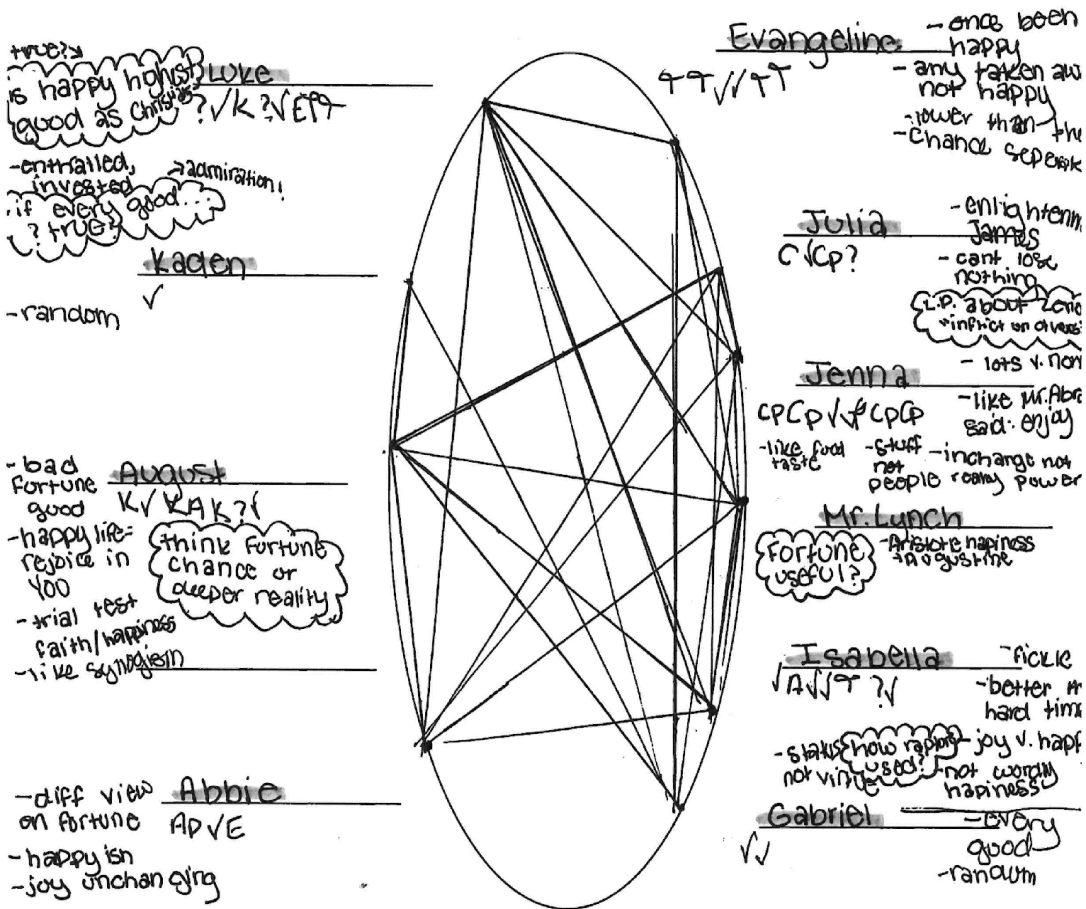 true?
is happy highest
good as Christians
Luke
?√K?√E
-enthralled,
invested
→admiration!
if every good...
? true?
Kaden
√
-random
-bad
fortune
good
August
-happy life=
rejoice in
YOU
think fortune
chance or
deeper reality
-trial test
faith/happiness
-like synogism
-diff view
on fortune
Abbie
AP√E
-happy isn
-joy unchanging
Evangeline
-once been
happy
-any taken aw
not happy
-lower than the
-Chance
Julia
C√Cp?
-enlightenm
James
-cant lose
nothing
L.P. about
"inflict on diversi
-lots v. non
Jenna
CpCp√√ CpCp
-like Mr.Abra
said: enjoy
-like food
taste
-stuff
not
people
-incharge not
really power
Mr.Lynch
Fortune
useful?
-Aristotle hapiness
+Augustine
Isabella
-fickle
√A√√T ?√
-better
hard time
-status
not virtue
how
used?
-joy v. happ
-not wordly
hapiness
Gabriel
√√
-every
good
-random